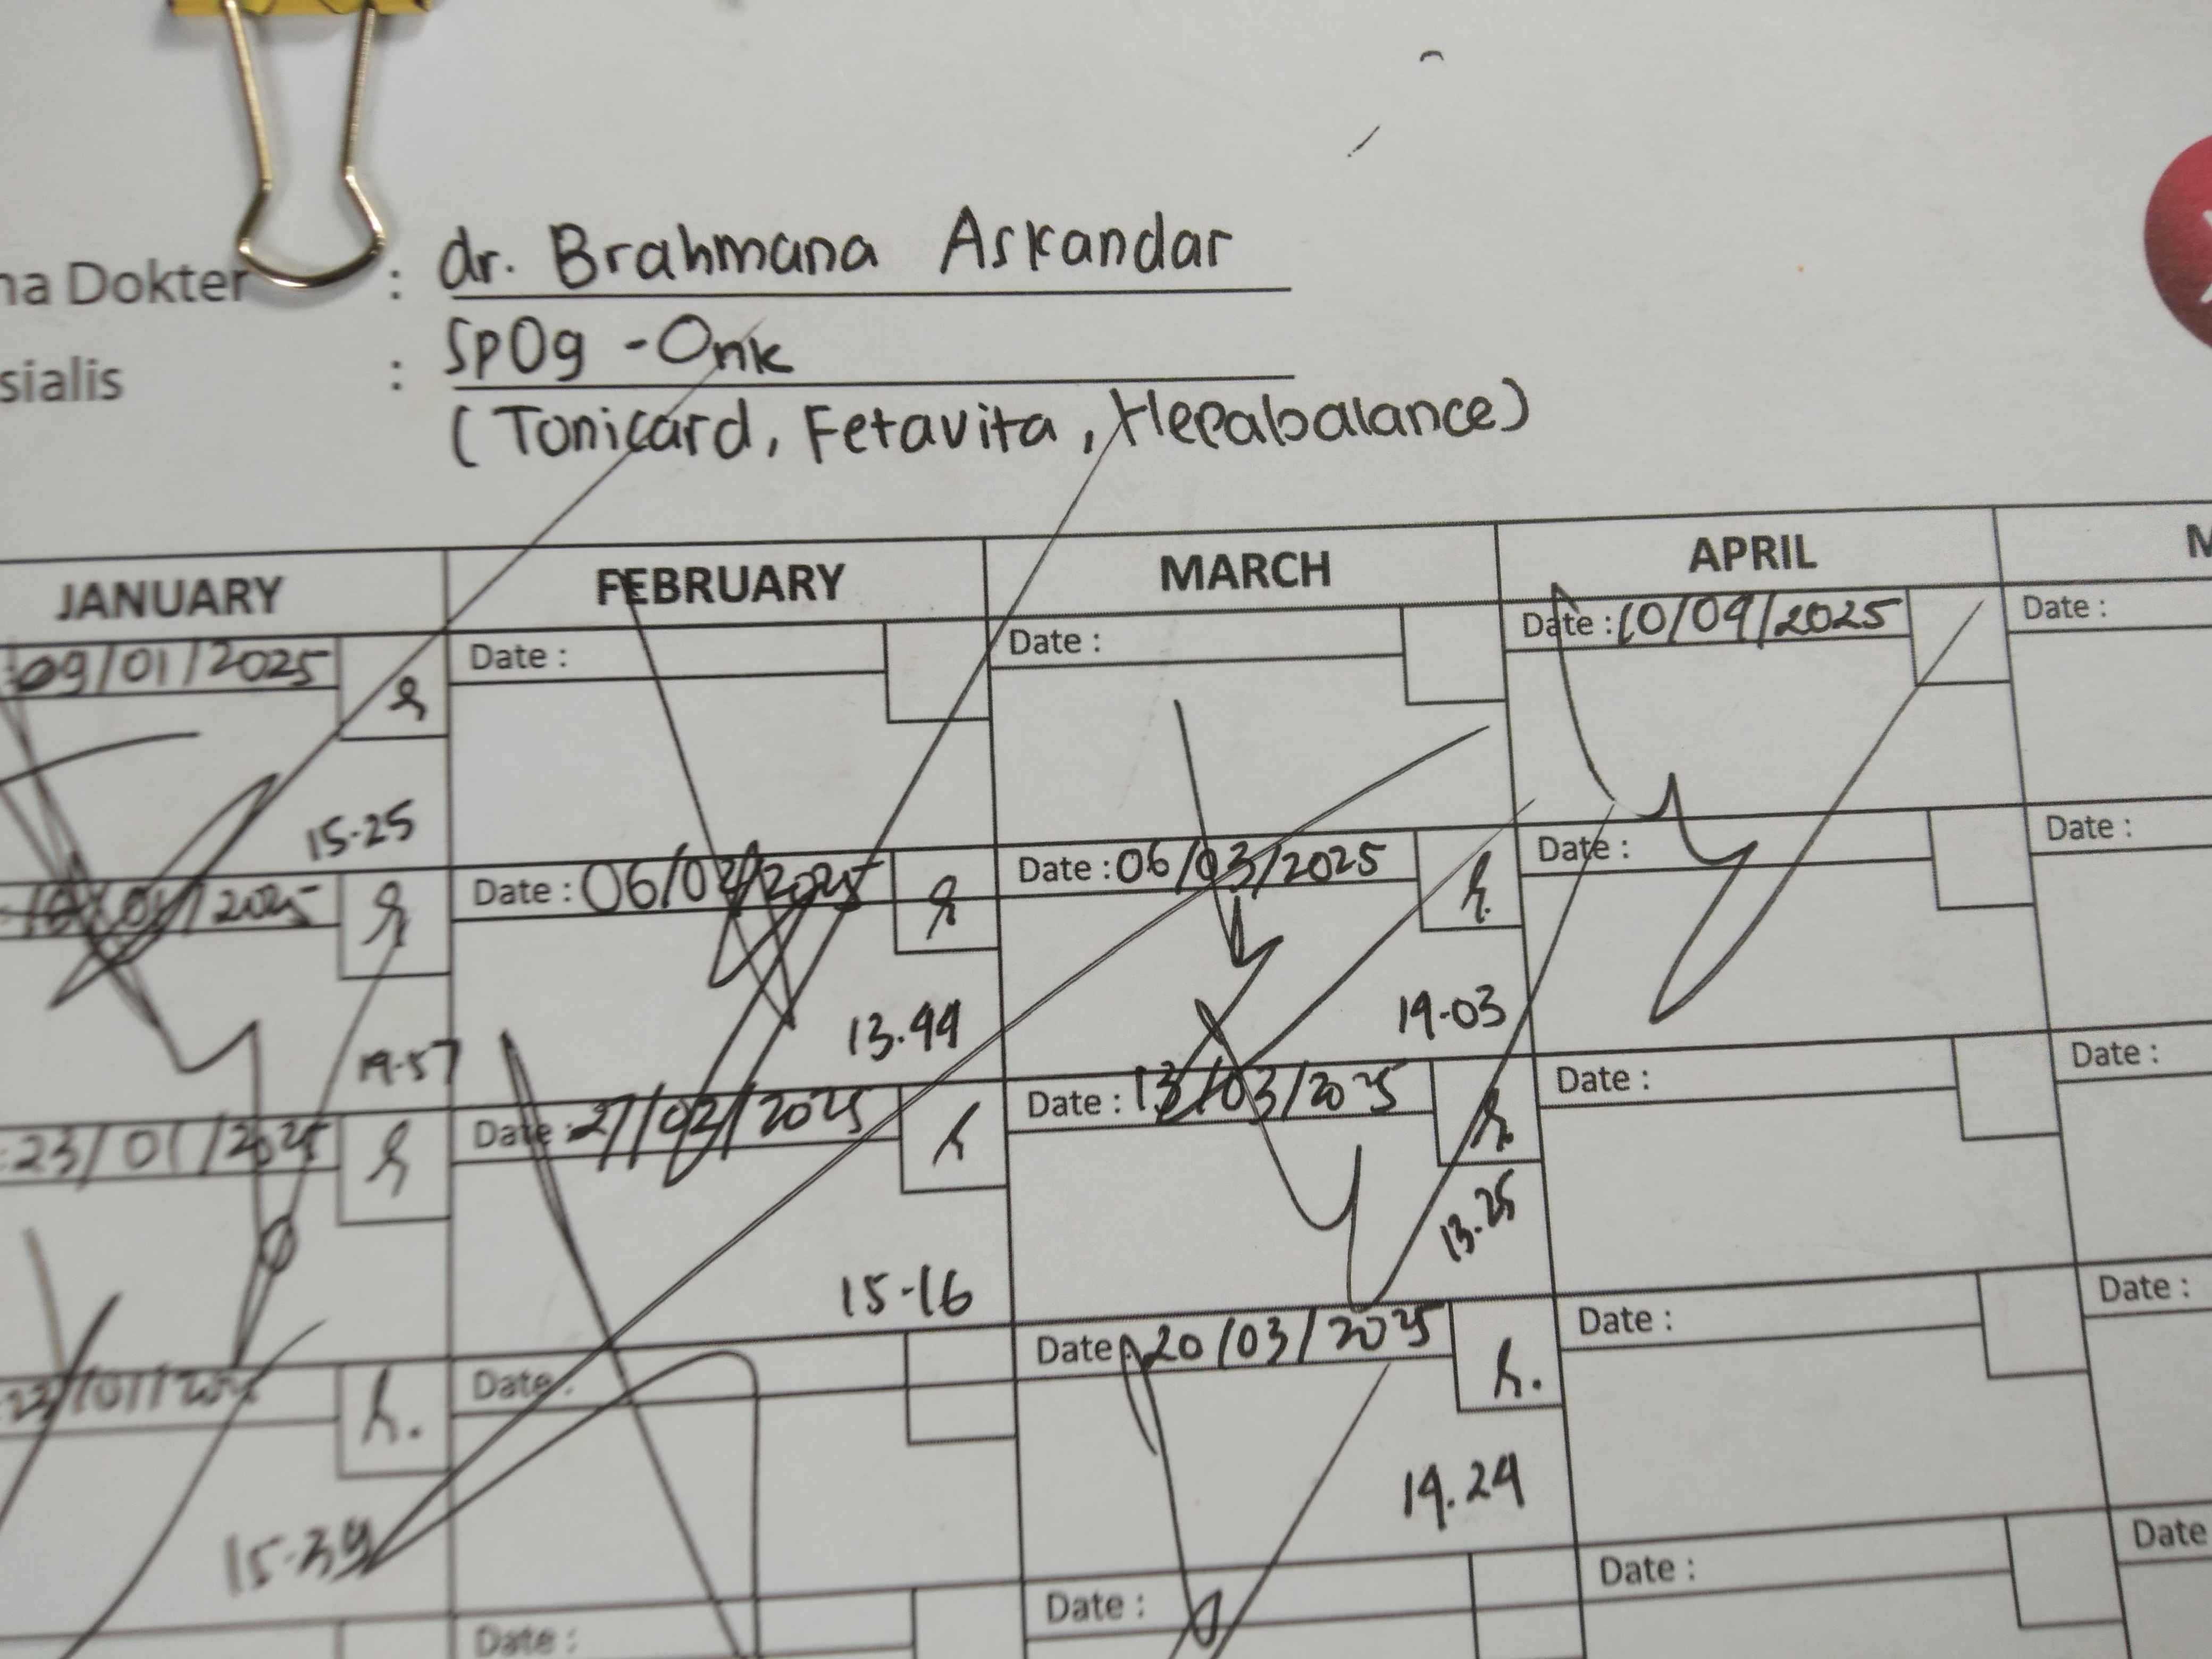 na Dokter : dr. Brahmana Askandar
sialis : SpOg - Onk
(Tonicard, Fetavita, Hepabalance)
JANUARY FEBRUARY MARCH APRIL
:09/01/2025 Date : Date : Date : 10/04/2025 Date :
15-25
/01/2025 Date : 06/02/2025 Date : 06/03/2025 Date : Date :
14-57 13.44 14-03
:23/01/2025 Date : 27/02/2025 Date : 13/03/2025 Date : Date :
15-16 13.25
/01/ Date : Date : 20/03/2025 Date : Date :
15-39 14.24
Date : Date : Date : Date